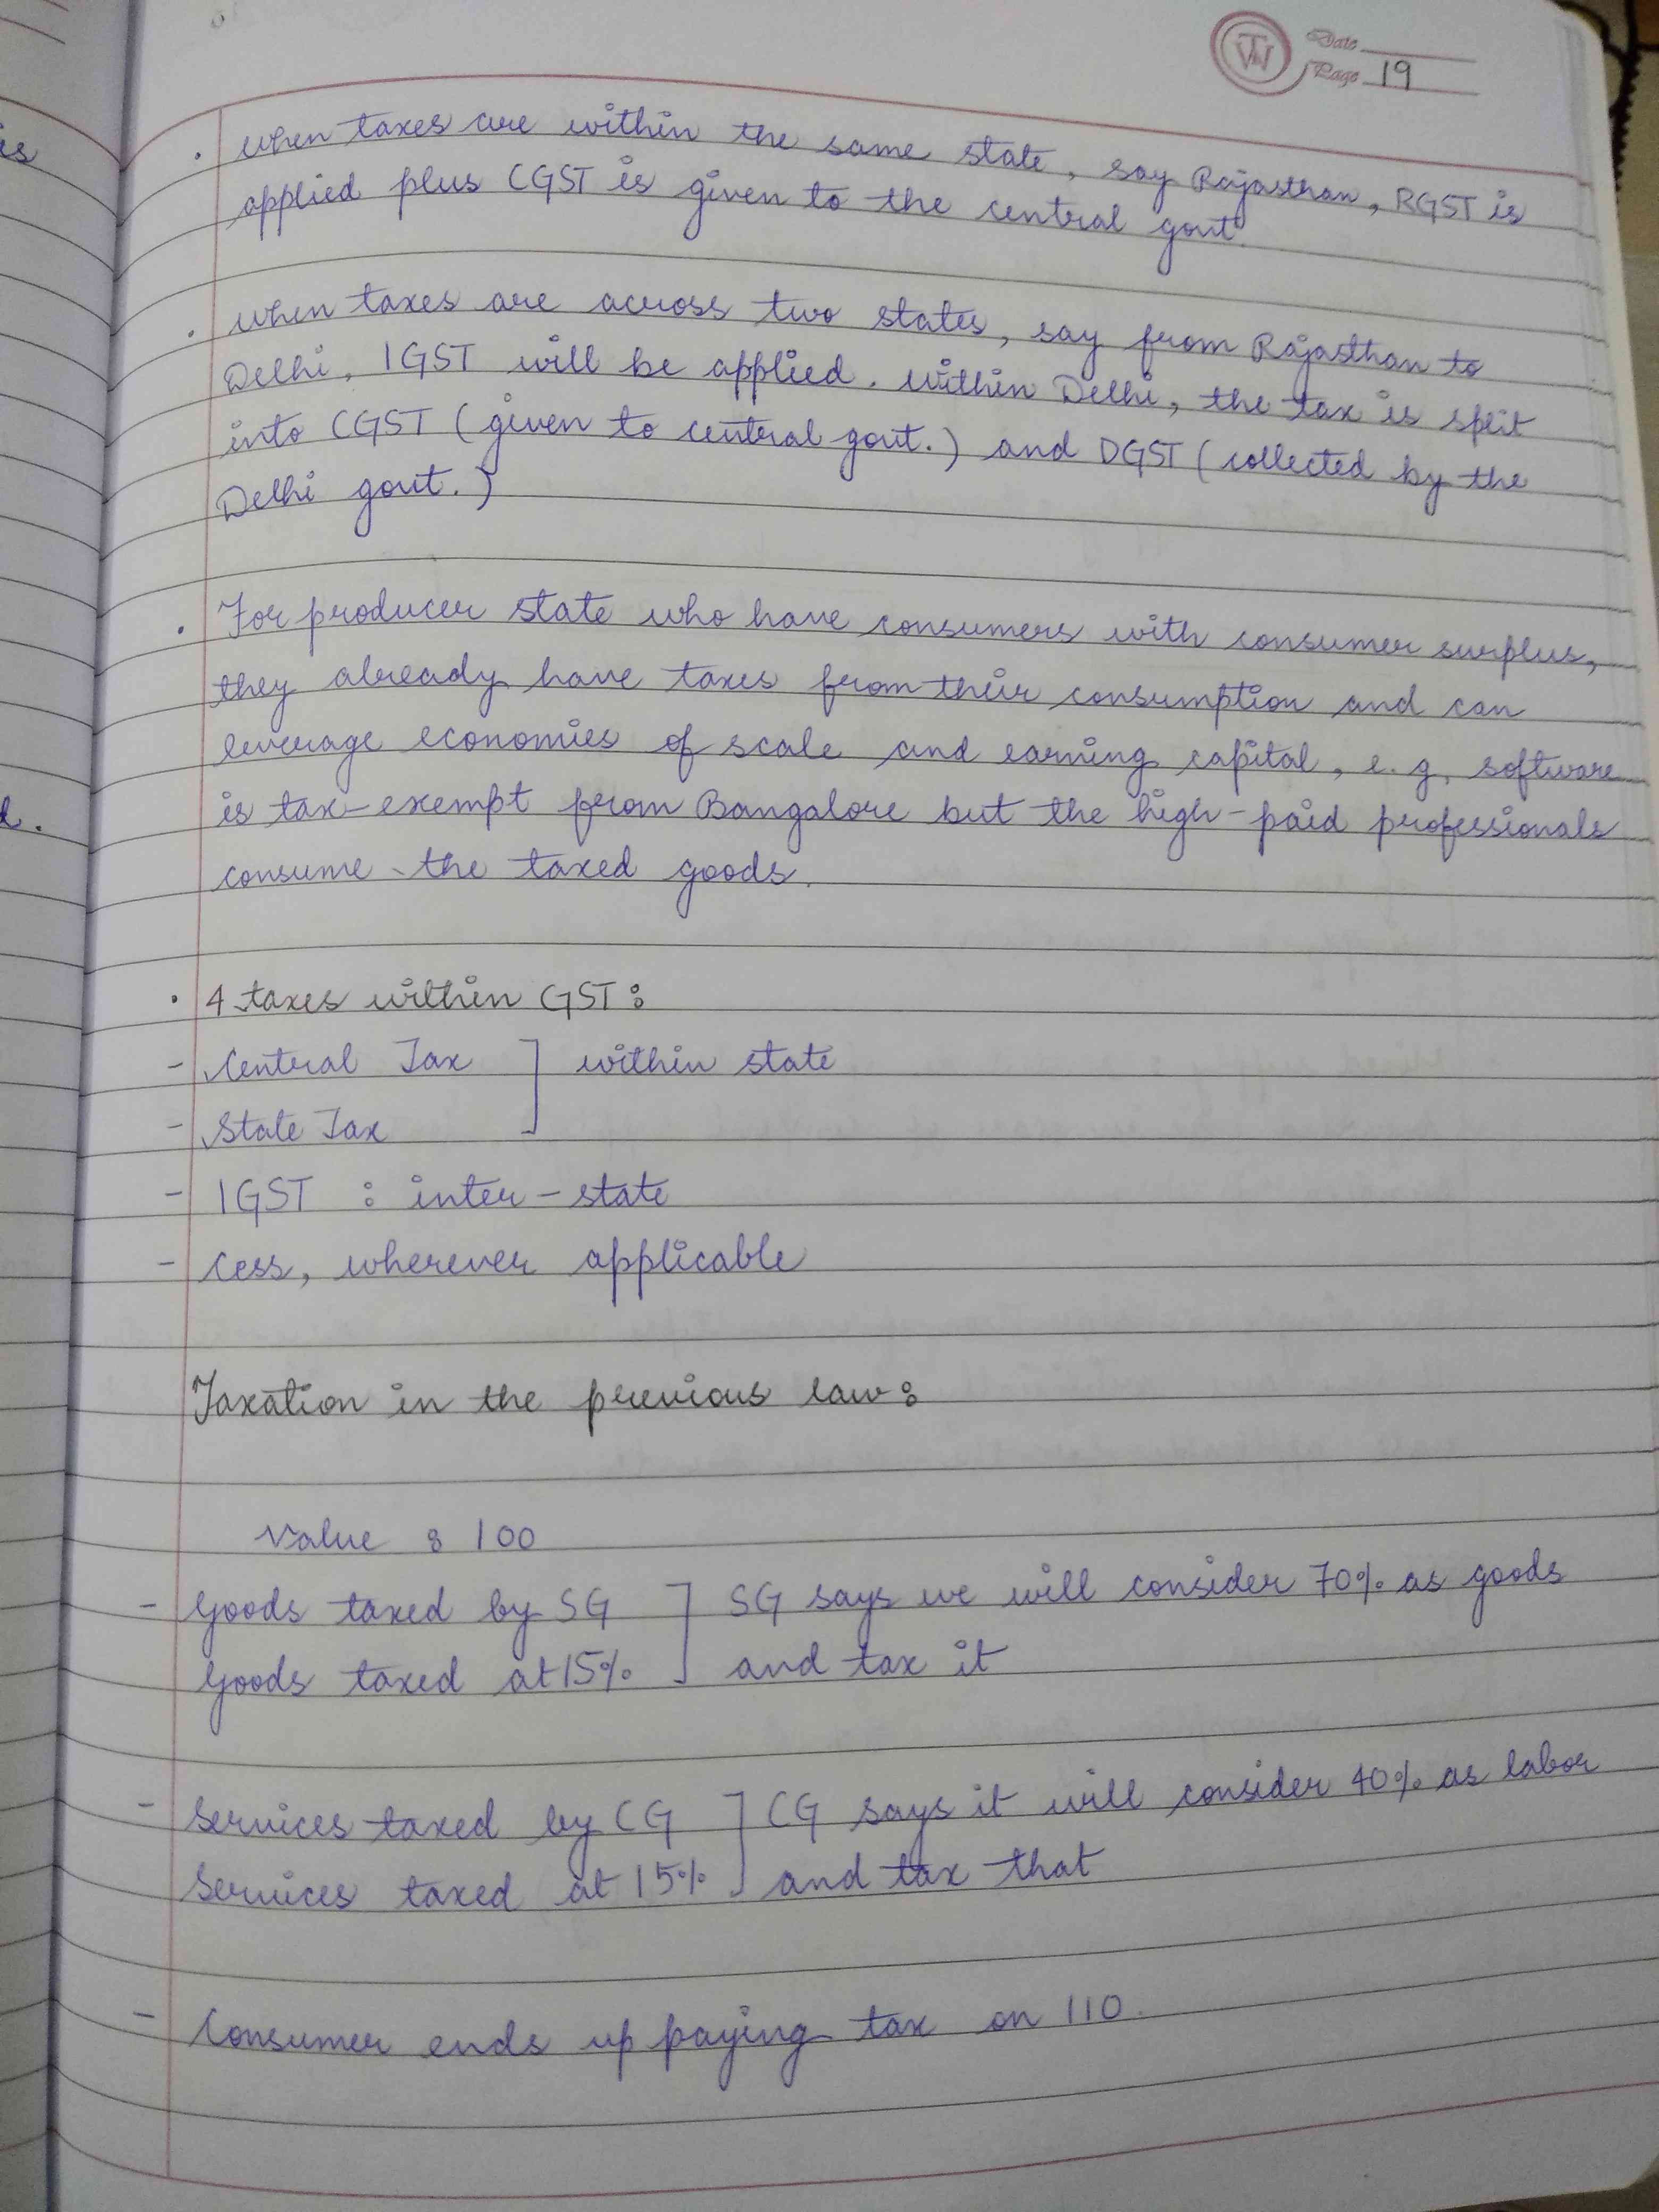 TW
Date
Page 19
is
. when taxes are within the same state, say Rajasthan, RGST is
applied plus CGST is given to the central govt.
. when taxes are across two states, say from Rajasthan to
Delhi, IGST will be applied. within Delhi, the tax is split
into CGST (given to central govt.) and DGST (collected by the
Delhi govt.)
. For producer state who have consumers with consumer surplus,
they already have taxes from their consumption and can
leverage economies of scale and earning capital, e.g. software
is tax-exempt from Bangalore but the high-paid professionals
consume the taxed goods.
. 4 taxes within GST:
- Central Tax ] within state
- State Tax
- IGST : inter-state
- Cess, wherever applicable
Taxation in the previous law:
Value : 100
- Goods taxed by SG ] SG says we will consider 70% as goods
Goods taxed at 15% and tax it
- Services taxed by CG ] CG says it will consider 40% as labor
Services taxed at 15% and tax that
- Consumer ends up paying tax on 110.